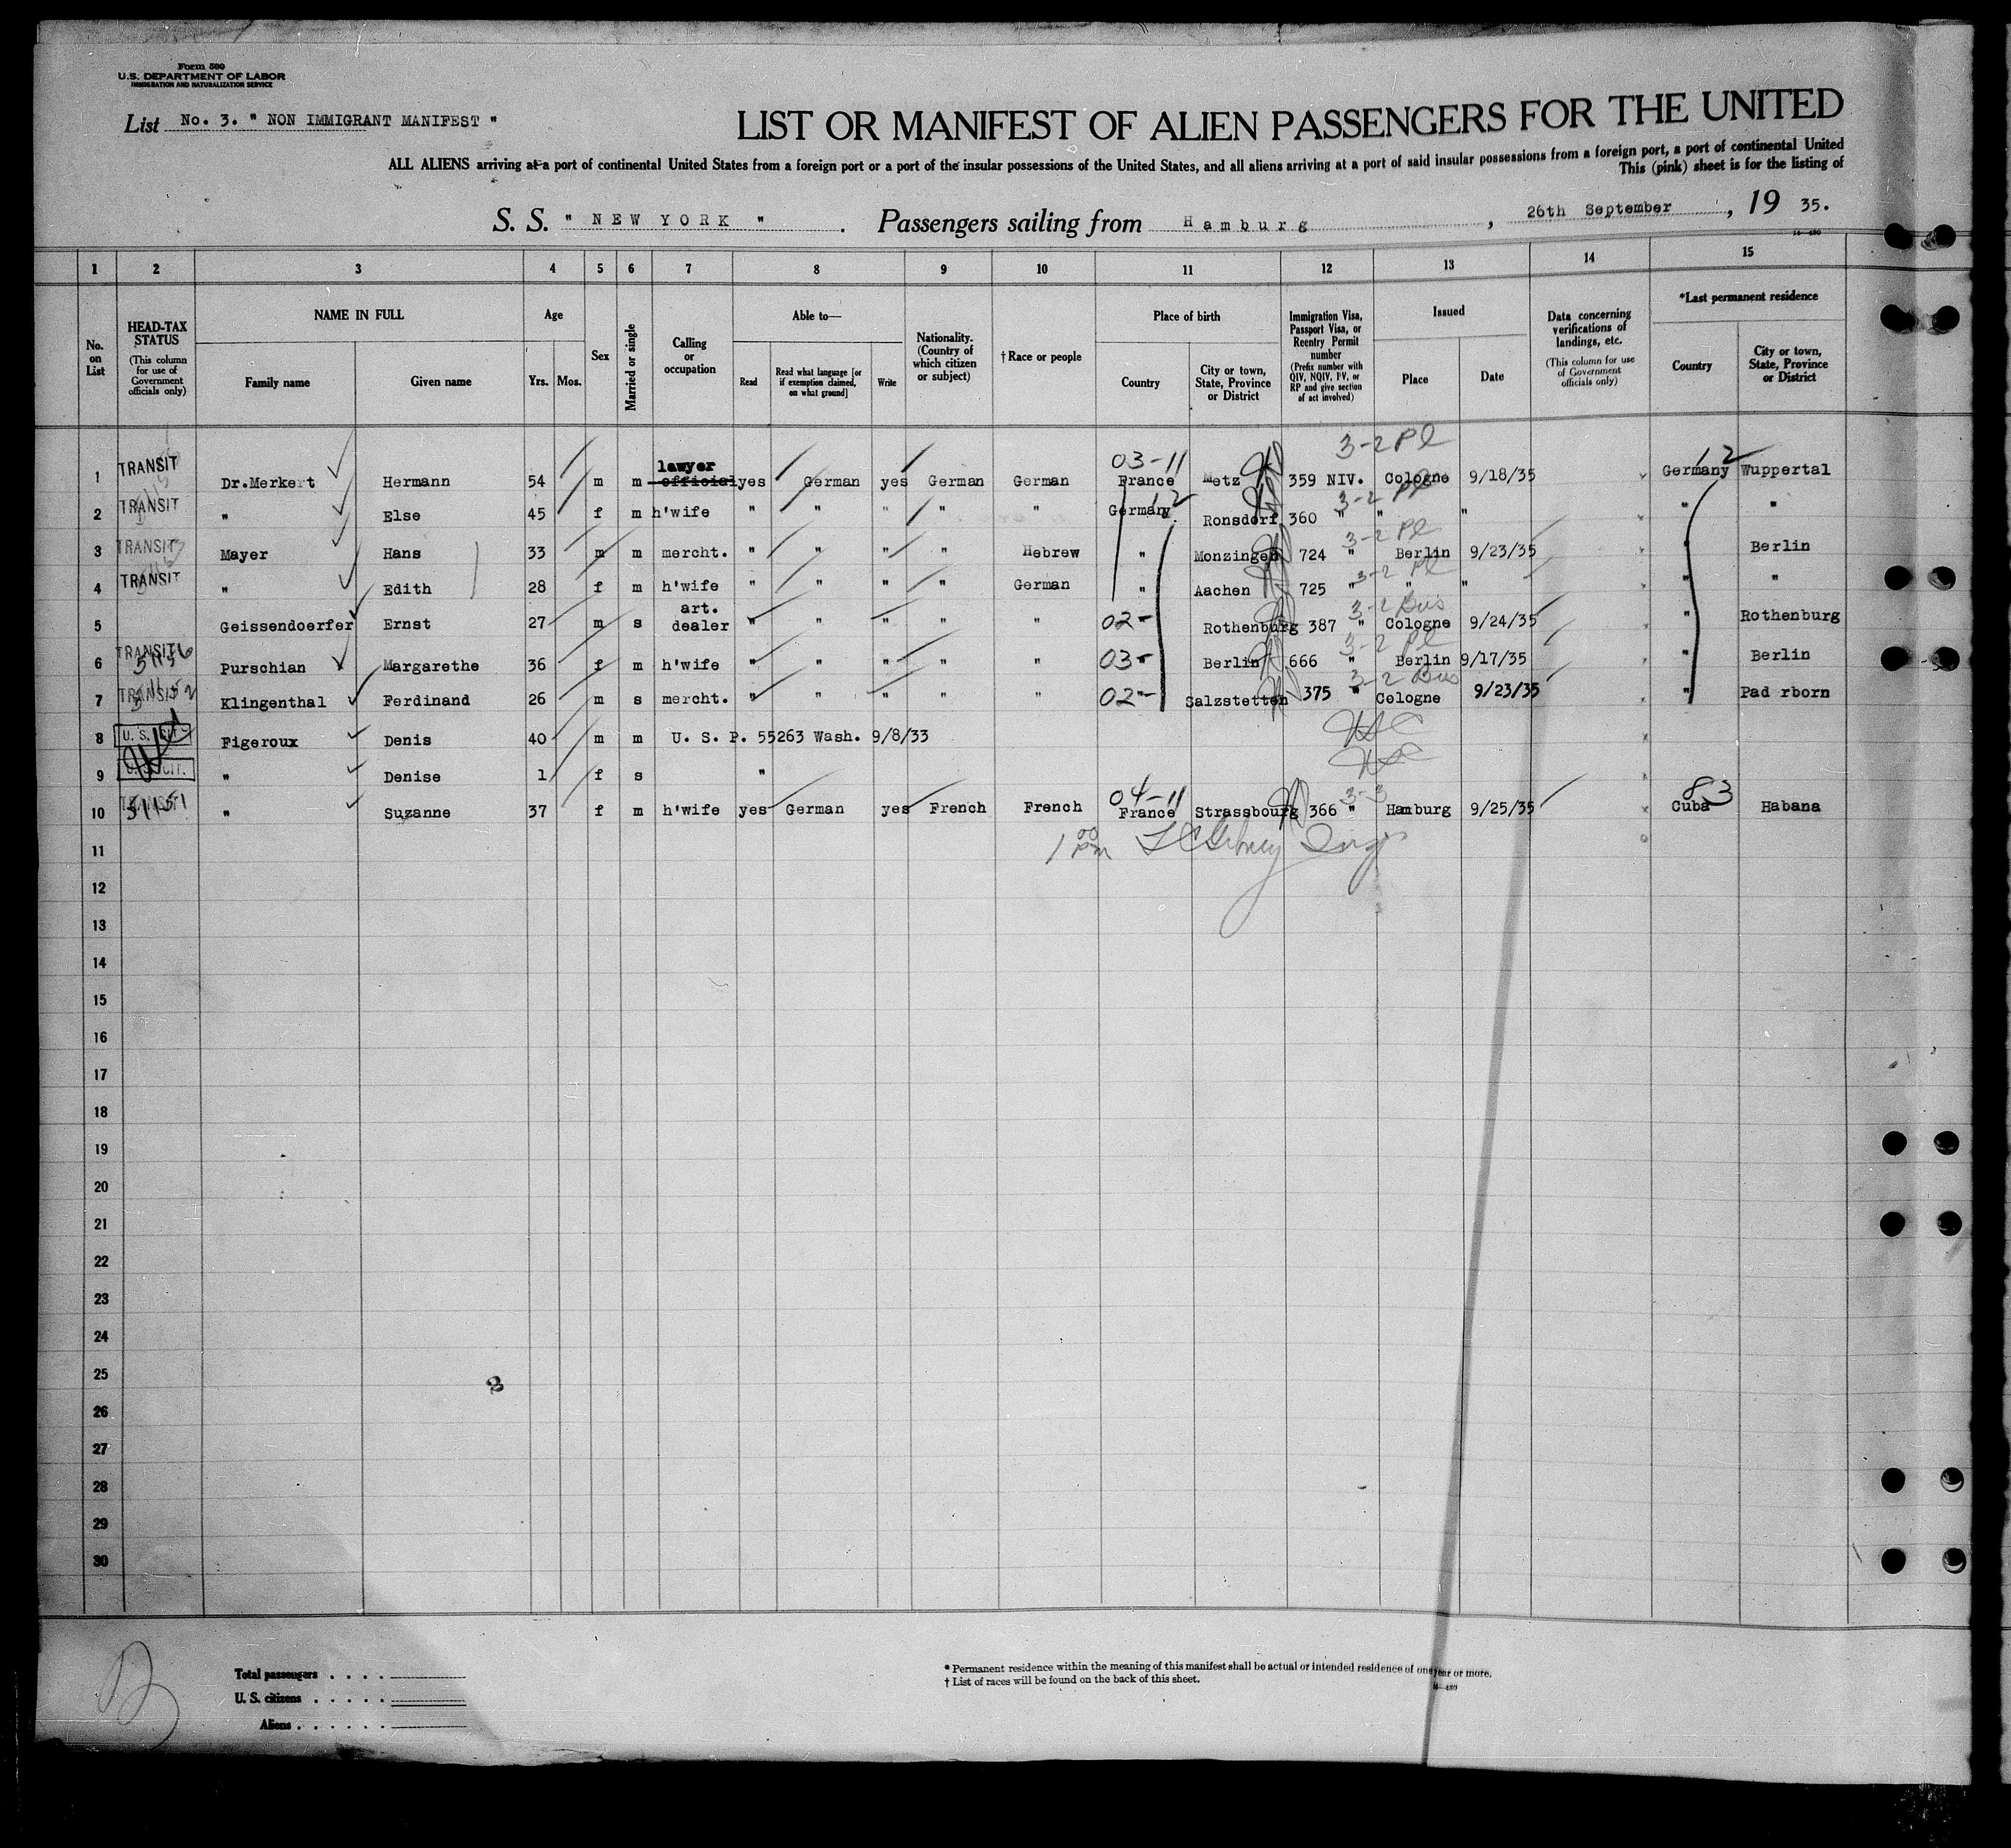 Form 500
U.S. DEPARTMENT OF LABOR
IMMIGRATION AND NATURALIZATION SERVICE
List No. 3. " NON IMMIGRANT MANIFEST "
LIST OR MANIFEST OF ALIEN PASSENGERS FOR THE UNITED
ALL ALIENS arriving at a port of continental United States from a foreign port or a port of the insular possessions of the United States, and all aliens arriving at a port of said insular possessions from a foreign port, a port of continental United
This (pink) sheet is for the listing of
S. S. " NEW YORK " . Passengers sailing from Hamburg , 26th September , 19 35.
1 2 3 4 5 6 7 8 9 10 11 12 13 14 15
No. on List
HEAD-TAX STATUS (This column for use of Government officials only)
NAME IN FULL
Family name Given name
Age
Yrs. Mos.
Sex
Married or single
Calling or occupation
Able to—
Read Read what language [or if exemption claimed, on what ground] Write
Nationality. (Country of which citizen or subject)
† Race or people
Place of birth
Country City or town, State, Province or District
Immigration Visa, Passport Visa, or Reentry Permit number (Prefix number with QIV, NQIV, PV, or RP and give section of act involved)
Issued
Place Date
Data concerning verifications of landings, etc. (This column for use of Government officials only)
*Last permanent residence
Country City or town, State, Province or District
03-11 3-2 Pl 12
1 TRANSIT Dr.Merkert Hermann 54 m m lawyer official yes German yes German German France Metz 359 NIV. Cologne 9/18/35 Germany Wuppertal
12 3-2 Pl
2 TRANSIT " Else 45 f m h'wife " " " " " Germany Ronsdorf 360 " " " " "
3-2 Pl
3 TRANSIT Mayer Hans 33 m m mercht. " " " " Hebrew " Monzingen 724 " Berlin 9/23/35 " Berlin
3-2 Pl
4 TRANSIT " Edith 28 f m h'wife " " " " German " Aachen 725 " " " " "
3-2 Bus
5 Geissendoerfer Ernst 27 m s art. dealer " " " " " 02- Rothenburg 387 " Cologne 9/24/35 " Rothenburg
3-2 Pl
6 TRANSIT Purschian Margarethe 36 f m h'wife " " " " " 03- Berlin 666 " Berlin 9/17/35 " Berlin
3-2 Bus
7 TRANSIT Klingenthal Ferdinand 26 m s mercht. " " " " " 02- Salzstetten 375 " Cologne 9/23/35 " Pad rborn
8 U. S. CIT. Figeroux Denis 40 m m U. S. P. 55263 Wash. 9/8/33 USC
9 U. S. CIT. " Denise 1 f s " USC
04-11 3-3 83
10 TRANSIT " Suzanne 37 f m h'wife yes German yes French French France Strassbourg 366 " Hamburg 9/25/35 Cuba Habana
11 1 00 pm
12
13
14
15
16
17
18
19
20
21
22
23
24
25
26
27
28
29
30
Total passengers . . . .
U. S. citizens . . . . .
Aliens . . . . . .
* Permanent residence within the meaning of this manifest shall be actual or intended residence of one year or more.
† List of races will be found on the back of this sheet.